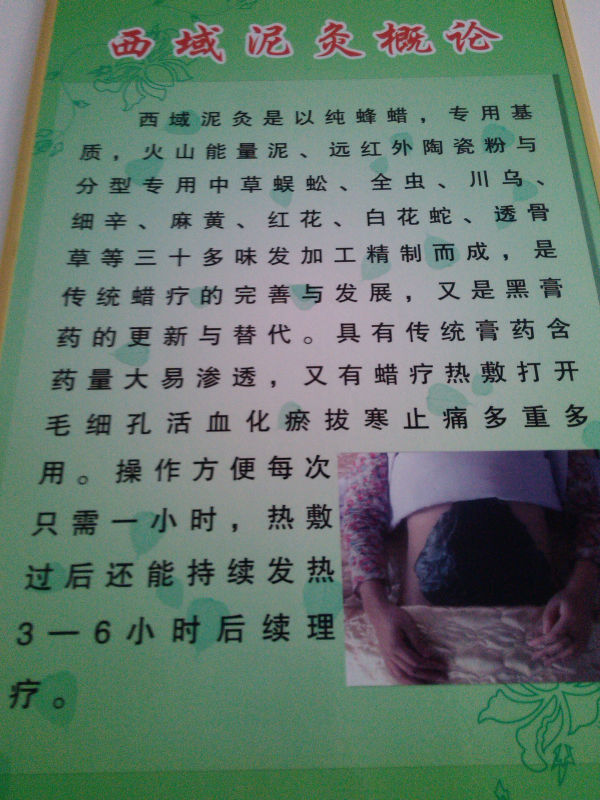 西域泥灸概论
西域泥灸是以纯蜂蜡，专用基
质，火山能量泥、远红外陶瓷粉与
分型专用中草蜈蚣、全虫、川乌、
细辛、麻黄、红花、白花蛇、透骨
草等三十多味发加工精制而成，是
传统蜡疗的完善与发展，又是黑膏
药的更新与替代。具有传统膏药含
药量大易渗透，又有蜡疗热敷打开
毛细孔活血化瘀拔寒止痛多重多
用。操作方便每次
只需一小时，热敷
过后还能持续发热
3—6小时后续理
疗。